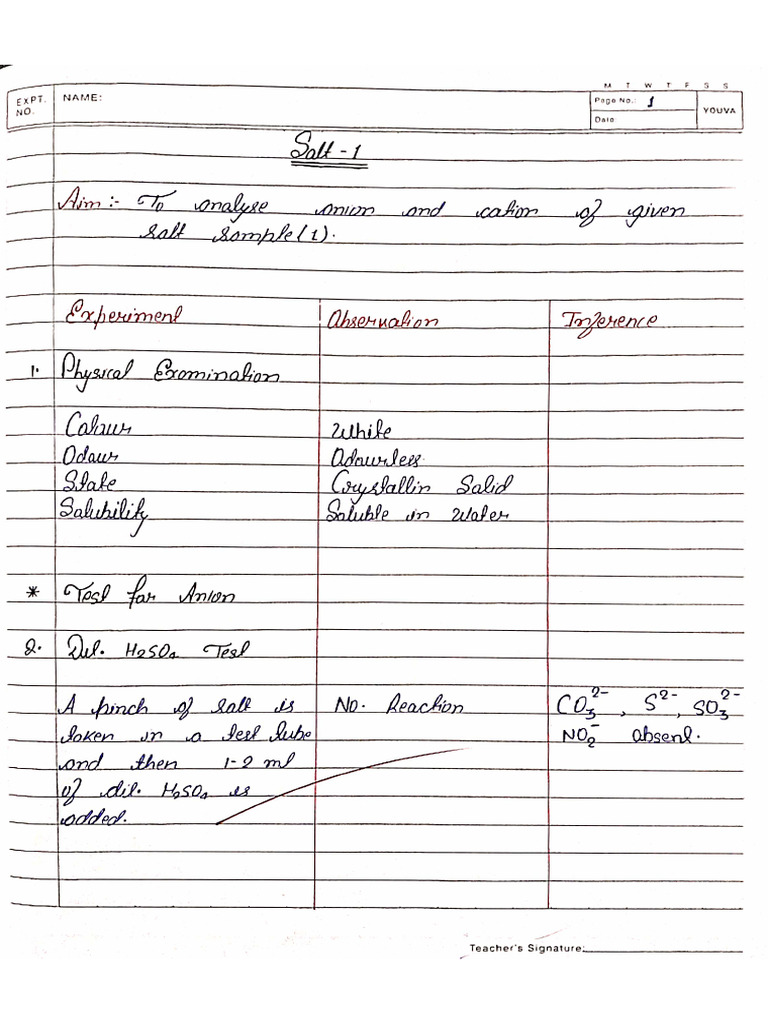 M T W T F S S
EXPT. NO. NAME: Page No.: 1 YOUVA
Date:
Salt - 1
Aim :- To analyse anion and cation of given
salt sample (1).
Experiment Observation Inference
1. Physical Examination
Colour White
Odour Odourless
State Crystallin Solid
Solubility Soluble in Water
* Test for Anion
2. Dil. H₂SO₄ Test
A pinch of salt is No. Reaction CO₃²⁻, S²⁻, SO₃²⁻
taken in a test tube NO₂⁻ absent.
and then 1-2 ml
of dil. H₂SO₄ is
added.
Teacher's Signature: